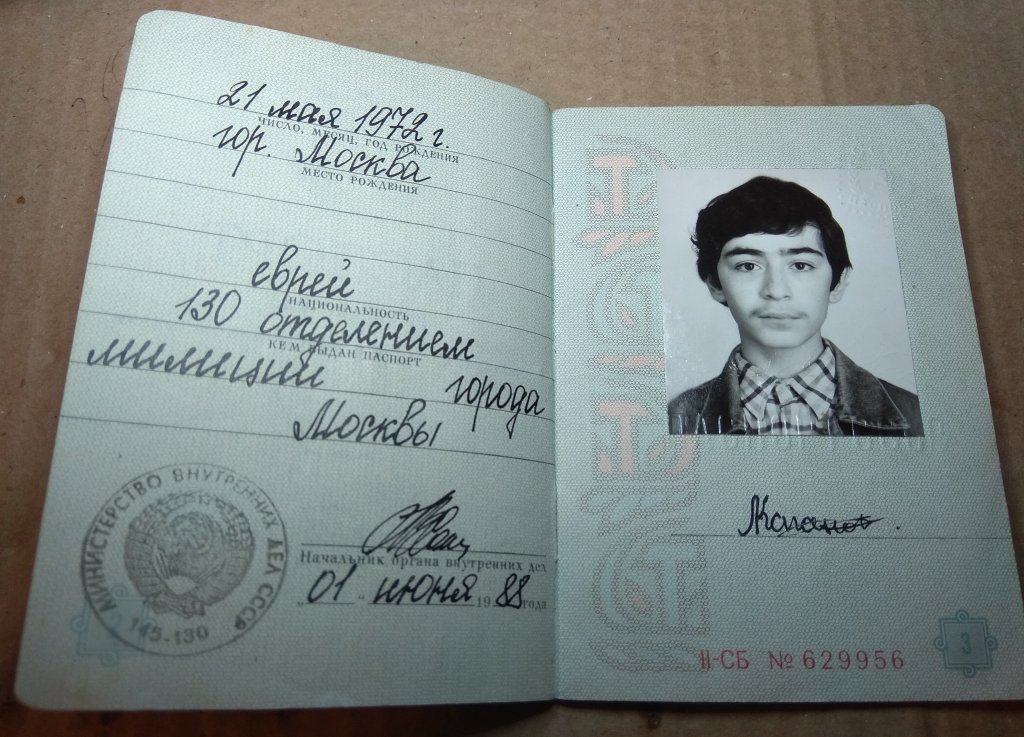 21 мая 1972 г.
ЧИСЛО, МЕСЯЦ, ГОД РОЖДЕНИЯ
гор. Москва
МЕСТО РОЖДЕНИЯ
еврей
НАЦИОНАЛЬНОСТЬ
130 отделением
КЕМ ВЫДАН ПАСПОРТ
милиции города
Москвы
МИНИСТЕРСТВО ВНУТРЕННИХ ДЕЛ СССР
145-130
Начальник органа внутренних дел
„01“ июня 1988 года
II-СБ № 629956
3